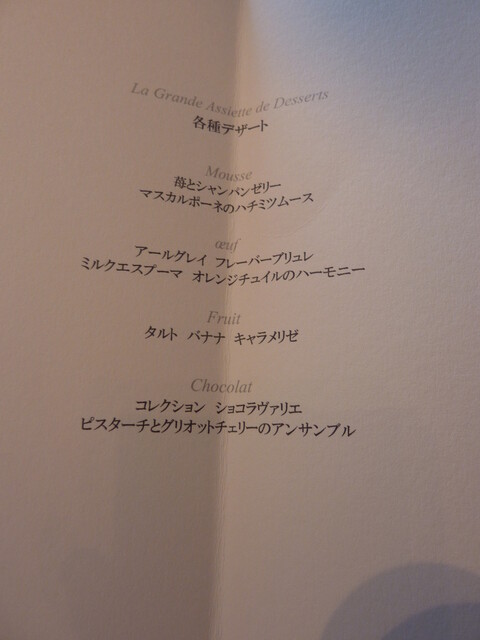 La Grande Assiette de Desserts
各種デザート
Mousse
苺とシャンパンゼリー
マスカルポーネのハチミツムース
œuf
アールグレイ フレーバーブリュレ
ミルクエスプーマ オレンジチュイルのハーモニー
Fruit
タルト バナナ キャラメリゼ
Chocolat
コレクション ショコラヴァリエ
ピスターチとグリオットチェリーのアンサンブル